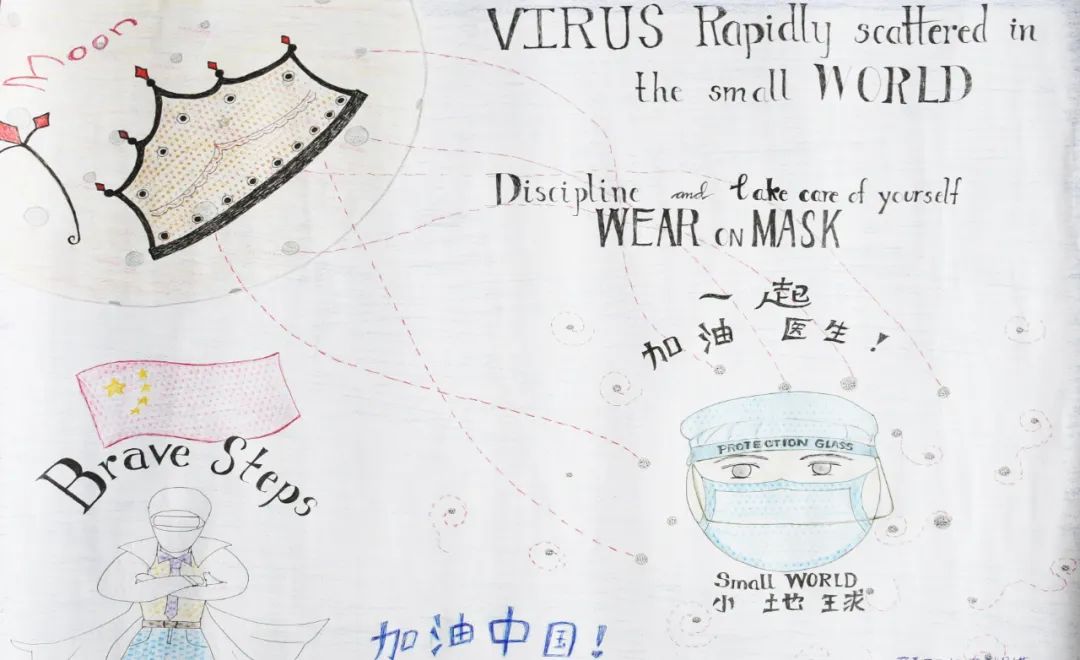 Moon
VIRUS Rapidly scattered in
the small WORLD
Discipline and take care of yourself
WEAR ON MASK
一起
加油 医生!
PROTECTION GLASS
Brave Steps
Small WORLD
小 地球
加油中国!